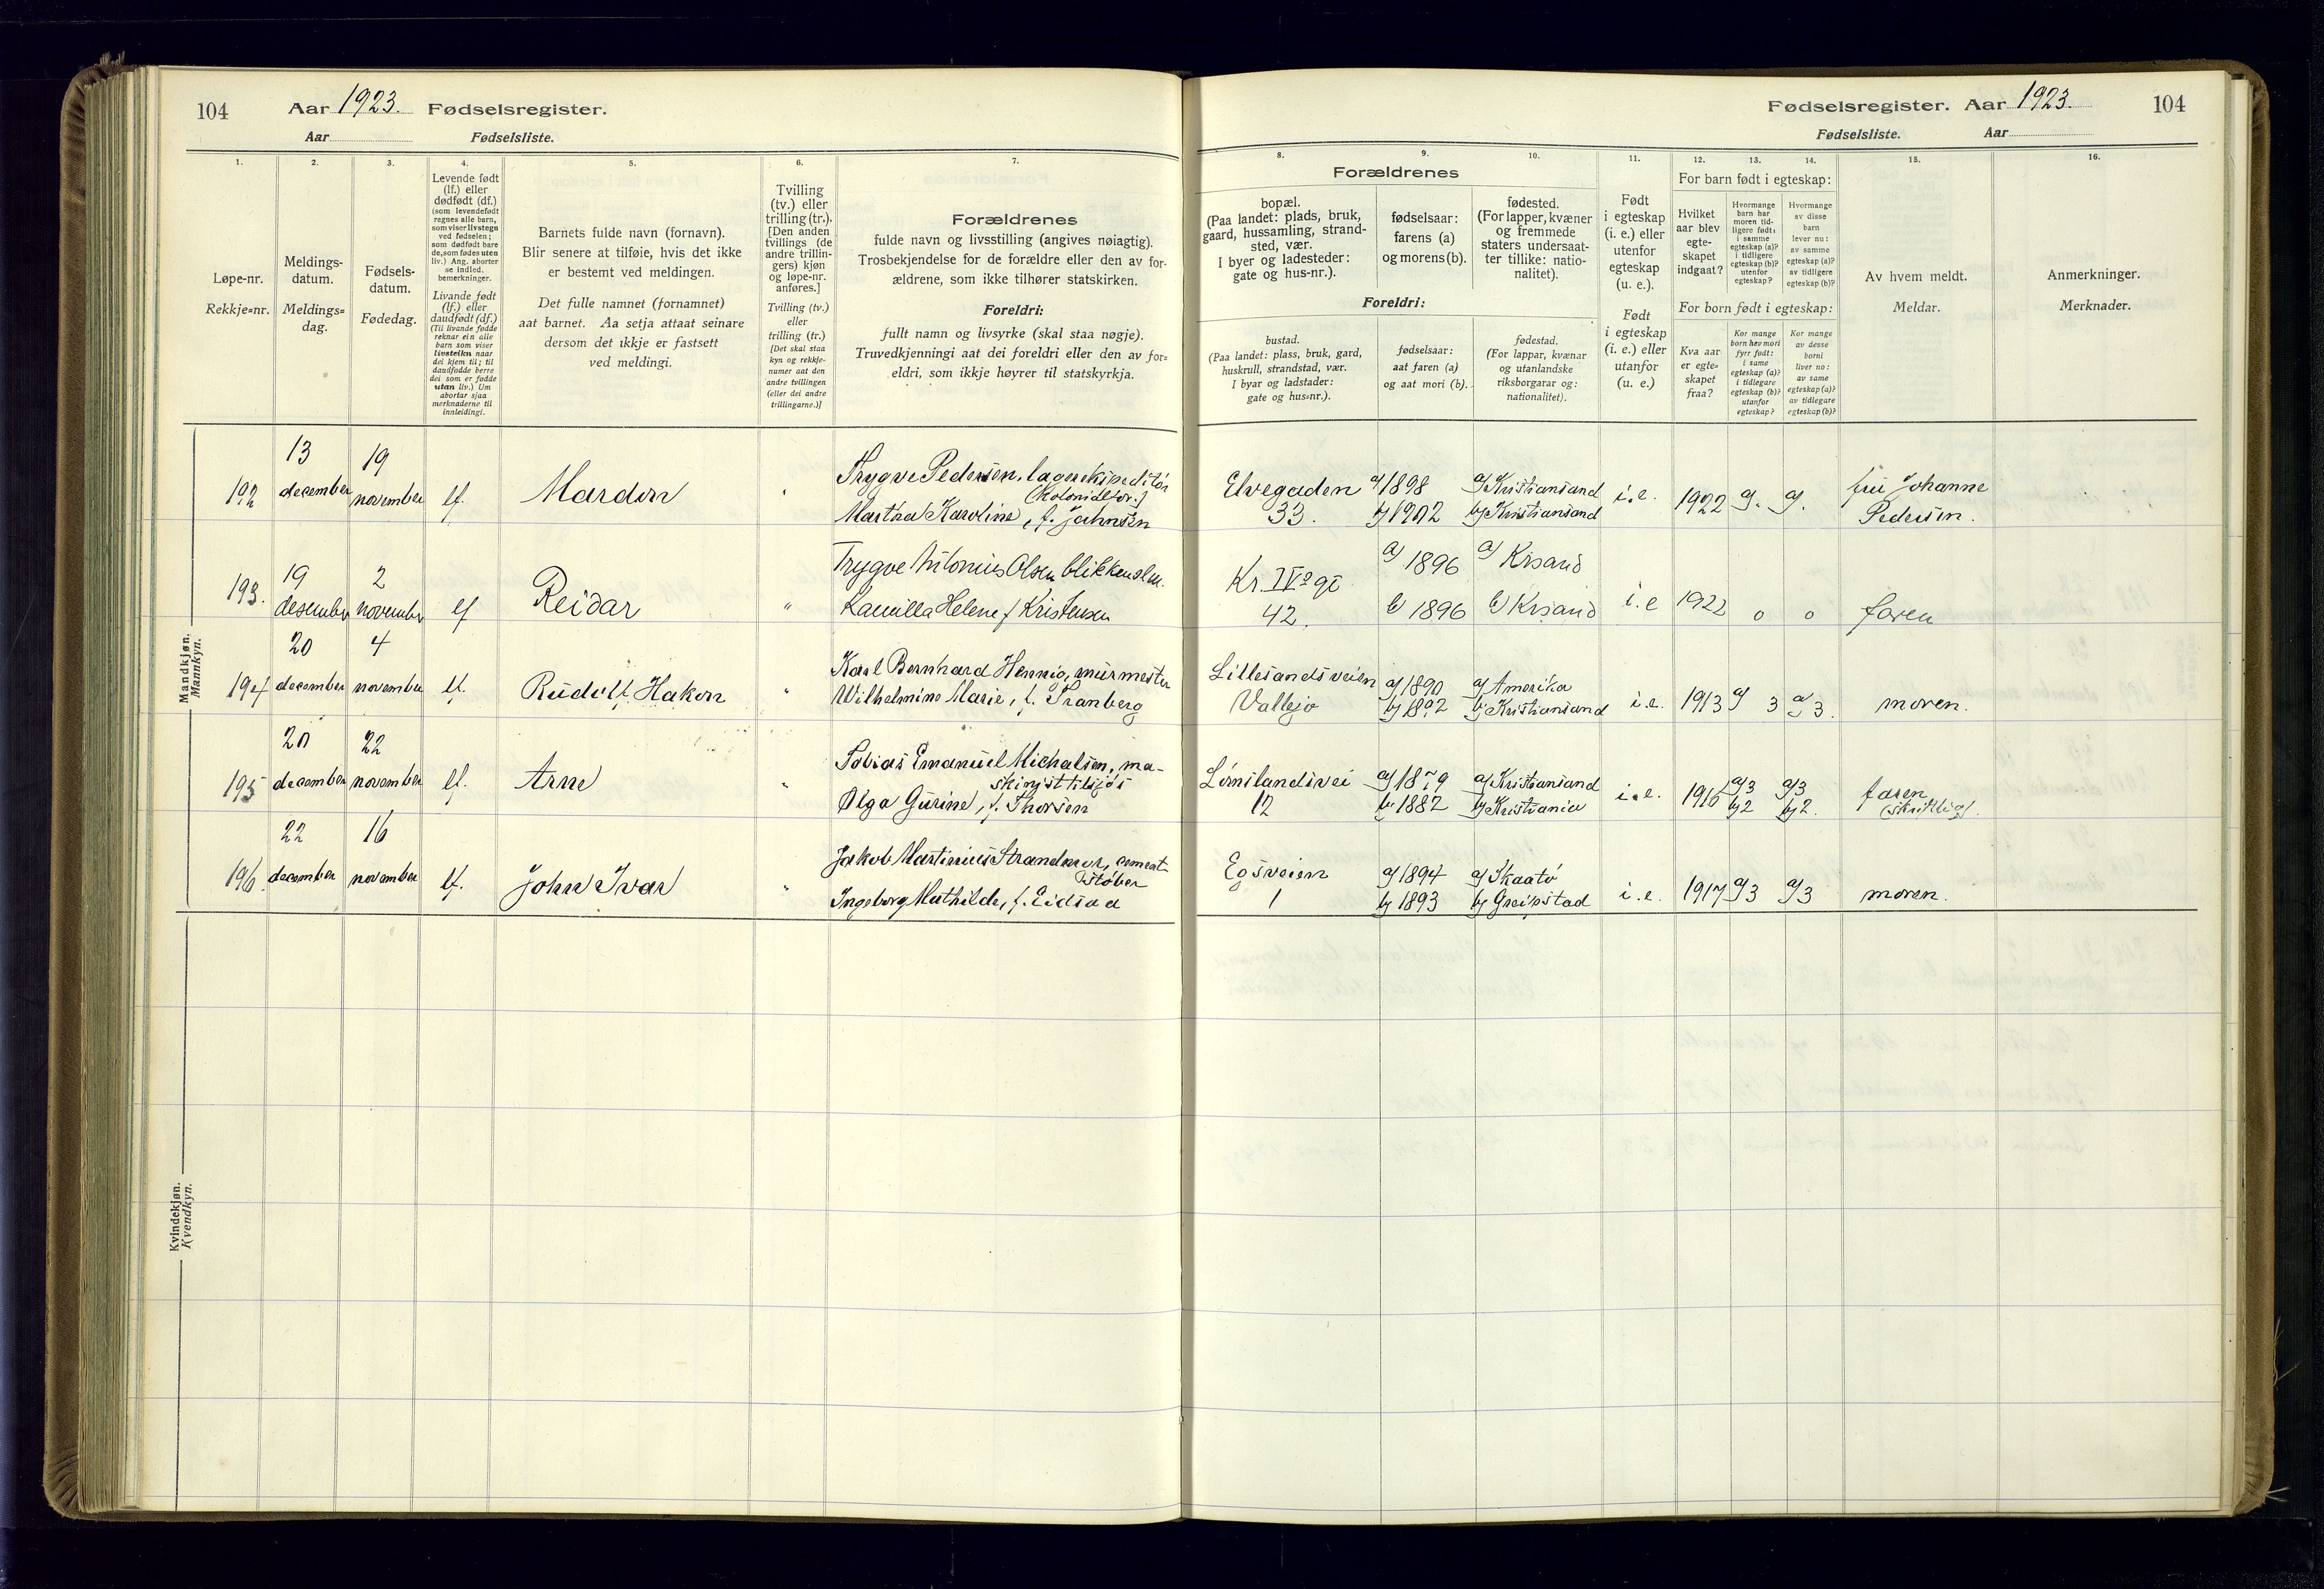 104 Aar 1923. Fødselsregister.
Aar Fødselsliste.
1. 2. 3. 4. 5. 6. 7.
Løpe-nr.
Rekkje=nr.
Meldings-
datum.
Meldings=
dag.
Fødsels-
datum.
Fødedag.
Levende født
(lf.) eller
dødfødt (df.)
(som levendefødt
regnes alle barn,
som viser livstegn
ved fødselen;
som dødfødt bare
de, som fødes uten
liv.) Ang. aborter
se indled.
bemerkninger.
Livande født
(lf.) eller
daudfødt (df.)
(Til livande fødde
reknar ein alle
barn som viser
livsteikn naar
dei kjem til; til
daudfødde berre
dei som er fødde
utan liv.) Um
abortar sjaa
merknaderne til
innleidingi.
Barnets fulde navn (fornavn).
Blir senere at tilføie, hvis det ikke
er bestemt ved meldingen.
Det fulle namnet (fornamnet)
aat barnet. Aa setja attaat seinare
dersom det ikkje er fastsett
ved meldingi.
Tvilling
(tv.) eller
trilling (tr.).
[Den anden
tvillings (de
andre trillin-
gers) kjøn
og løpe-nr.
anføres.]
Tvilling (tv.)
eller
trilling (tr.)
[Det skal staa
kyn og rekkje-
numer aat den
andre tvillingen
(eller dei andre
trillingarne.)]
Forældrenes
fulde navn og livsstilling (angives nøiagtig).
Trosbekjendelse for de forældre eller den av for-
ældrene, som ikke tilhører statskirken.
Foreldri:
fullt namn og livsyrke (skal staa nøgje).
Truvedkjenningi aat dei foreldri eller den av for=
eldri, som ikkje høyrer til statskyrkja.
Mandkjøn.
Mankyn.
192 13 december 19 november lf. " Trygve Pedersen, lagerekspeditør
(Kolonialfor.)
Martha Karoline, f. Johnsen
193. 19 desember 2 november lf Reidar " Trygve Antonius Olsen blikkensl.
Kamilla Helene f Kristensen
194 20 december 4 november lf. Rudolf Hakon " Karl Bernhard Hennig, murmester
Wilhelmine Marie, f. Tranberg
195 20 december 22 november lf. Arne " Tobias Emanuel Michalsen, ma-
skinist tilsjøs
Olga Gurine, f. Thorsen
196. 22 december 16 november lf. John Ivar " Jakob Martinius Strandmyr, cement-
støber
Ingeborg Mathilde, f. Eidsaa
Kvindekjøn.
Kvendkyn.
Fødselsregister. Aar 1923. 104
Fødselsliste. Aar
8. 9. 10. 11. 12. 13. 14. 15. 16.
Forældrenes
bopæl.
(Paa landet: plads, bruk,
gaard, hussamling, strand-
sted, vær.
I byer og ladesteder:
gate og hus-nr.).
fødselsaar:
farens (a)
og morens (b).
fødested.
(For lapper, kvæner
og fremmede
staters undersaat-
ter tillike: natio-
nalitet).
Foreldri:
bustad.
(Paa landet: plass, bruk, gard,
huskrull, strandstad, vær.
I byar og ladstader:
gate og hus=nr.).
fødselsaar:
aat faren (a)
og aat mori (b).
fødestad.
(For lappar, kvænar
og utanlandske
riksborgarar og:
nationalitet).
Født
i egteskap
(i. e.) eller
utenfor
egteskap
(u. e.).
Født
i egteskap
(i. e.) eller
utanfor
(u. e.)
For barn født i egteskap:
Hvilket
aar blev
egte-
skapet
indgaat?
Hvormange
barn har
moren tid-
ligere født:
i samme
egteskap (a)?
i tidligere
egteskap (b)?
utenfor
egteskap?
Hvormange
av disse
barn
lever nu:
av samme
egteskap (a)?
av tidligere
egteskap (b)?
For born født i egteskap:
Kva aar
er egte=
skapet
fraa?
Kor mange
born hev mori
fyrr født:
i same
egteskap (a)?
i tidlegare
egteskap (b)?
utanfor
egteskap?
Kor mange
av desse
borni
liver no:
av same
egteskap (a)?
av tidlegare
egteskap (b)?
Av hvem meldt.
Meldar.
Anmerkninger.
Merknader.
Elvegaden 33. a) 1898 b) 1902 a) Kristiansand b) Kristiansand i. e. 1922 fru Johanne
Pedersen.
Kr. IVs gt 42. a) 1896 b) 1896 a) Krsand b) Krsand i. e 1922 0 0 faren
Lillesandsveien
Vallejo a) 1890 b) 1892 a) Amerika b) Kristiansand i. e. 1913 a) 3 a) 3. moren.
12 a) 1879 b) 1882 a) Kristiansand b) Kristiania i. e. 1916 a) 3 b) 2 a) 3 b) 2. faren
(skriftlig).
Egsveien
1 a) 1894 b) 1893 a) Skaatø b) Greipstad i. e. 1917 a) 3 a) 3 moren.